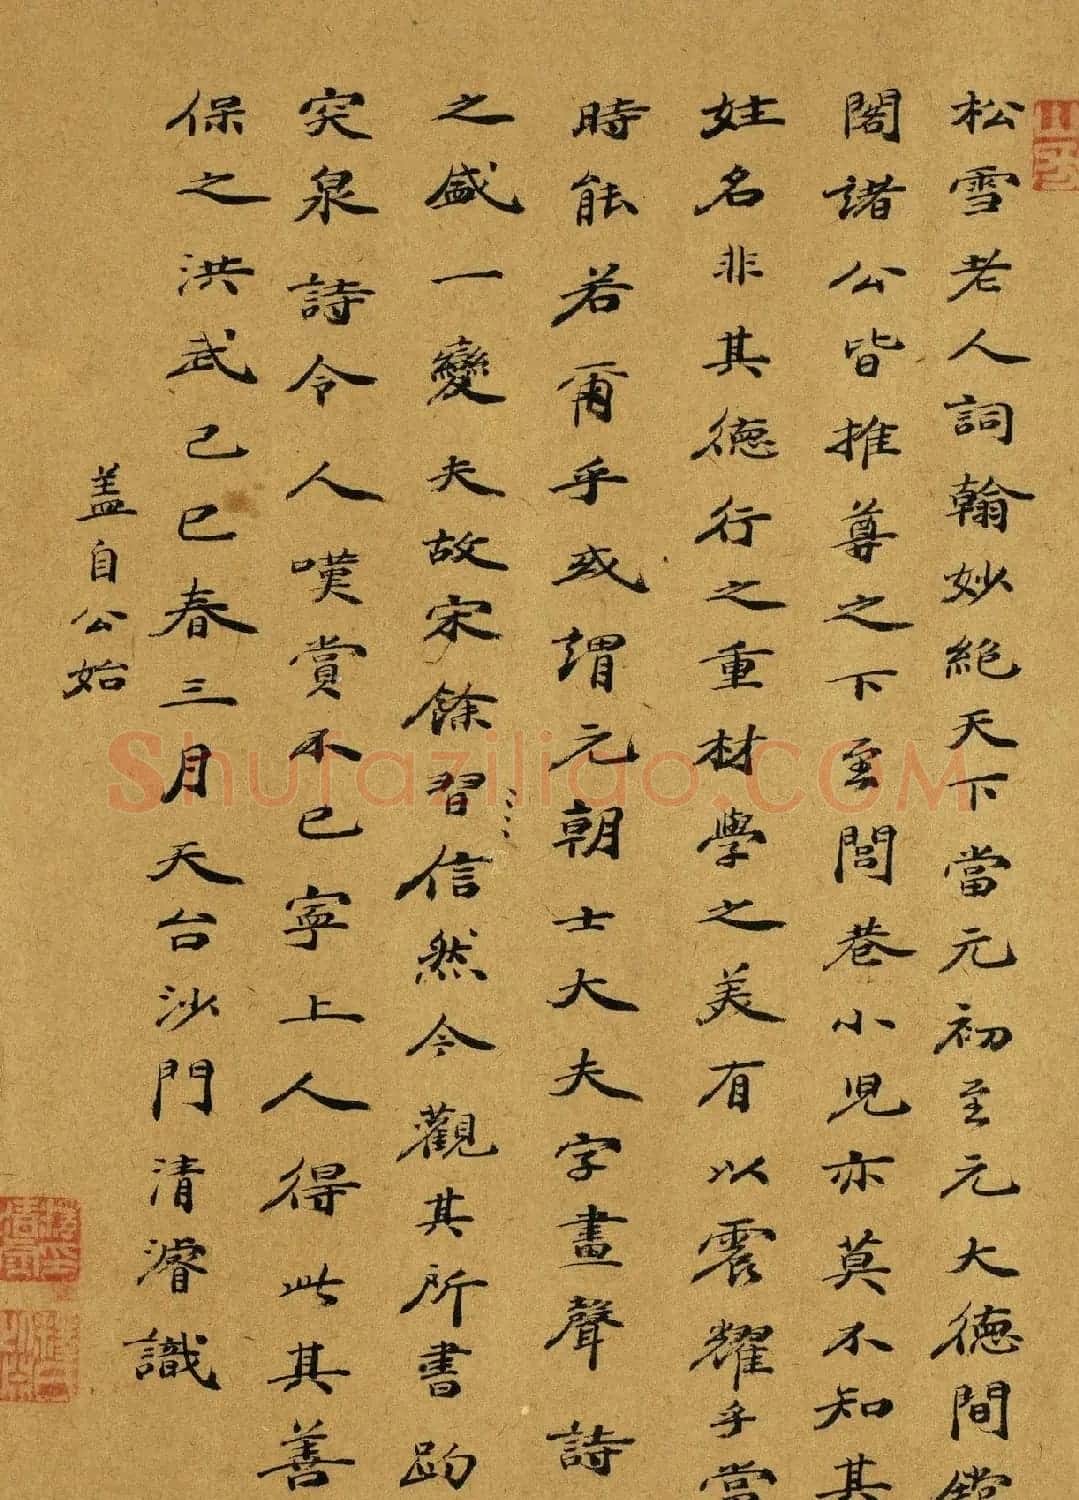 松雪老人詞翰妙絕天下當元初至元大德間
閣諸公皆推尊之下至閭巷小兒亦莫不知其
姓名非其德行之重材學之美有以震耀乎當
時能若爾乎或謂元朝士大夫字畫聲詩
之盛一變夫故宋餘習信然今觀其所書趵
突泉詩令人嘆賞不已寧上人得此其善
保之洪武己巳春三月天台沙門清濬識
盖自公始
Shufaziliao.COM